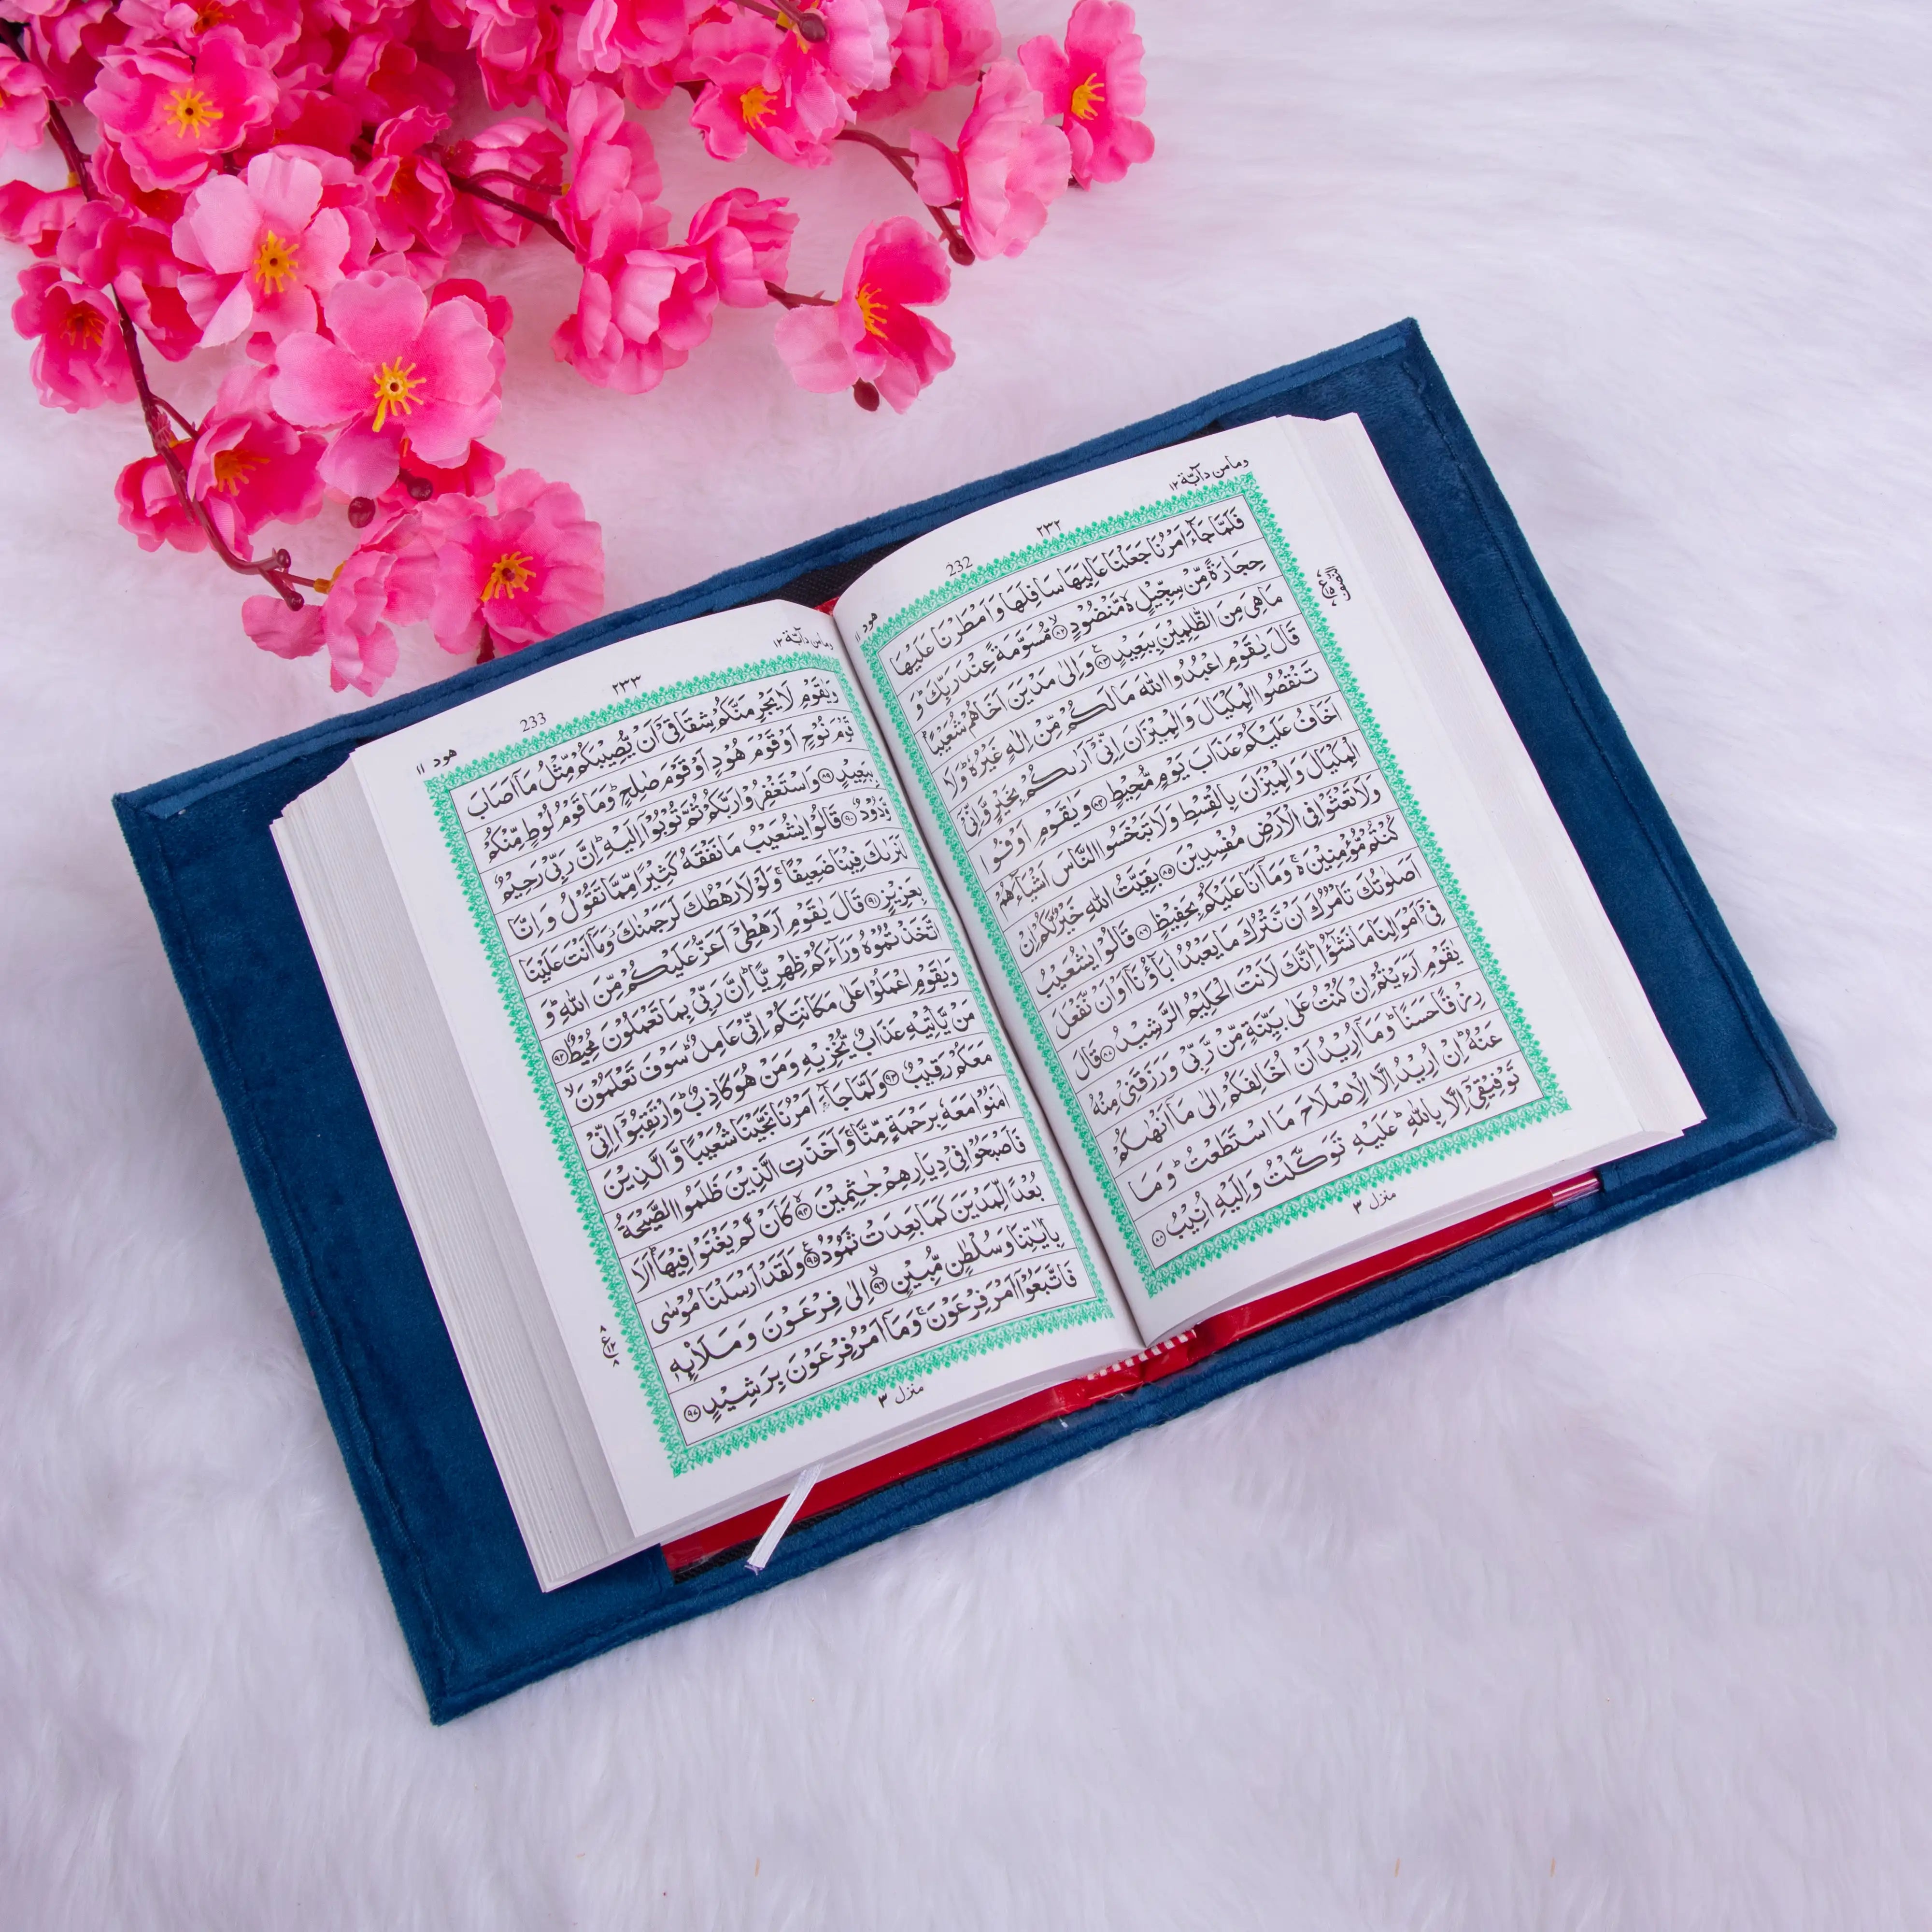 ومامن دآبّة ١٢
٢٣٢
232
هود ١١
فَلَمَّا جَآءَ اَمْرُنَا جَعَلْنَا عَالِيَهَا سَافِلَهَا وَاَمْطَرْنَا عَلَيْهَا
حِجَارَةً مِّنْ سِجِّيْلٍ ۙ مَّنْضُوْدٍ ۙ﴿۸۲﴾ مُّسَوَّمَةً عِنْدَ رَبِّكَ ؕ وَ
مَا هِىَ مِنَ الظّٰلِمِيْنَ بِبَعِيْدٍ ﴿۸۳﴾ؑ وَاِلٰى مَدْيَنَ اَخَاهُمْ شُعَيْبًا ؕ
قَالَ يٰقَوْمِ اعْبُدُوا اللّٰهَ مَا لَكُمْ مِّنْ اِلٰهٍ غَيْرُهٗ ؕ وَلَا
تَنْقُصُوا الْمِكْيَالَ وَالْمِيْزَانَ اِنِّىْۤ اَرٰىكُمْ بِخَيْرٍ وَّاِنِّىْۤ
اَخَافُ عَلَيْكُمْ عَذَابَ يَوْمٍ مُّحِيْطٍ ﴿۸۴﴾ وَيٰقَوْمِ اَوْفُوا
الْمِكْيَالَ وَالْمِيْزَانَ بِالْقِسْطِ وَلَا تَبْخَسُوا النَّاسَ اَشْيَآءَهُمْ
وَلَا تَعْثَوْا فِى الْاَرْضِ مُفْسِدِيْنَ ﴿۸۵﴾ بَقِيَّتُ اللّٰهِ خَيْرٌ لَّكُمْ اِنْ
كُنْتُمْ مُّؤْمِنِيْنَ ۚ۬ وَمَاۤ اَنَا عَلَيْكُمْ بِحَفِيْظٍ ﴿۸۶﴾ قَالُوْا يٰشُعَيْبُ
اَصَلٰوتُكَ تَاْمُرُكَ اَنْ نَّتْرُكَ مَا يَعْبُدُ اٰبَآؤُنَاۤ اَوْ اَنْ نَّفْعَلَ
فِىْۤ اَمْوَالِنَا مَا نَشٰٓؤُا ؕ اِنَّكَ لَاَنْتَ الْحَلِيْمُ الرَّشِيْدُ ﴿۸۷﴾ قَالَ
يٰقَوْمِ اَرَءَيْتُمْ اِنْ كُنْتُ عَلٰى بَيِّنَةٍ مِّنْ رَّبِّىْ وَرَزَقَنِىْ مِنْهُ
رِزْقًا حَسَنًا ؕ وَمَاۤ اُرِيْدُ اَنْ اُخَالِفَكُمْ اِلٰى مَاۤ اَنْهٰىكُمْ
عَنْهُ ؕ اِنْ اُرِيْدُ اِلَّا الْاِصْلَاحَ مَا اسْتَطَعْتُ ؕ وَمَا
تَوْفِيْقِىْۤ اِلَّا بِاللّٰهِ ؕ عَلَيْهِ تَوَكَّلْتُ وَاِلَيْهِ اُنِيْبُ ﴿۸۸﴾
منزل ٣
ومامن دآبّة ١٢
٢٣٣
233
هود ١١
وَيٰقَوْمِ لَا يَجْرِمَنَّكُمْ شِقَاقِىْۤ اَنْ يُّصِيْبَكُمْ مِّثْلُ مَاۤ اَصَابَ
قَوْمَ نُوْحٍ اَوْ قَوْمَ هُوْدٍ اَوْ قَوْمَ صٰلِحٍ ؕ وَمَا قَوْمُ لُوْطٍ مِّنْكُمْ
بِبَعِيْدٍ ﴿۸۹﴾ وَاسْتَغْفِرُوْا رَبَّكُمْ ثُمَّ تُوْبُوْۤا اِلَيْهِ ؕ اِنَّ رَبِّىْ رَحِيْمٌ
وَّدُوْدٌ ﴿۹۰﴾ قَالُوْا يٰشُعَيْبُ مَا نَفْقَهُ كَثِيْرًا مِّمَّا تَقُوْلُ وَاِنَّا
لَنَرٰىكَ فِيْنَا ضَعِيْفًا ۚ وَلَوْلَا رَهْطُكَ لَرَجَمْنٰكَ ؗ وَمَاۤ اَنْتَ عَلَيْنَا
بِعَزِيْزٍ ﴿۹۱﴾ قَالَ يٰقَوْمِ اَرَهْطِىْۤ اَعَزُّ عَلَيْكُمْ مِّنَ اللّٰهِ ؕ وَ
اتَّخَذْتُمُوْهُ وَرَآءَكُمْ ظِهْرِيًّا ؕ اِنَّ رَبِّىْ بِمَا تَعْمَلُوْنَ مُحِيْطٌ ﴿۹۲﴾
وَيٰقَوْمِ اعْمَلُوْا عَلٰى مَكَانَتِكُمْ اِنِّىْ عَامِلٌ ؕ سَوْفَ تَعْلَمُوْنَ ۙ
مَنْ يَّاْتِيْهِ عَذَابٌ يُّخْزِيْهِ وَمَنْ هُوَ كَاذِبٌ ؕ وَارْتَقِبُوْۤا اِنِّىْ
مَعَكُمْ رَقِيْبٌ ﴿۹۳﴾ وَلَمَّا جَآءَ اَمْرُنَا نَجَّيْنَا شُعَيْبًا وَّالَّذِيْنَ
اٰمَنُوْا مَعَهٗ بِرَحْمَةٍ مِّنَّا ۚ وَاَخَذَتِ الَّذِيْنَ ظَلَمُوا الصَّيْحَةُ
فَاَصْبَحُوْا فِىْ دِيَارِهِمْ جٰثِمِيْنَ ﴿۹۴﴾ۙ كَاَنْ لَّمْ يَغْنَوْا فِيْهَا ؕ اَلَا
بُعْدًا لِّمَدْيَنَ كَمَا بَعِدَتْ ثَمُوْدُ ﴿۹۵﴾ؑ وَلَقَدْ اَرْسَلْنَا مُوْسٰى
بِاٰيٰتِنَا وَسُلْطٰنٍ مُّبِيْنٍ ﴿۹۶﴾ۙ اِلٰى فِرْعَوْنَ وَمَلَا۟ئِهٖ
فَاتَّبَعُوْۤا اَمْرَ فِرْعَوْنَ ۚ وَمَاۤ اَمْرُ فِرْعَوْنَ بِرَشِيْدٍ ﴿۹۷﴾
منزل ٣